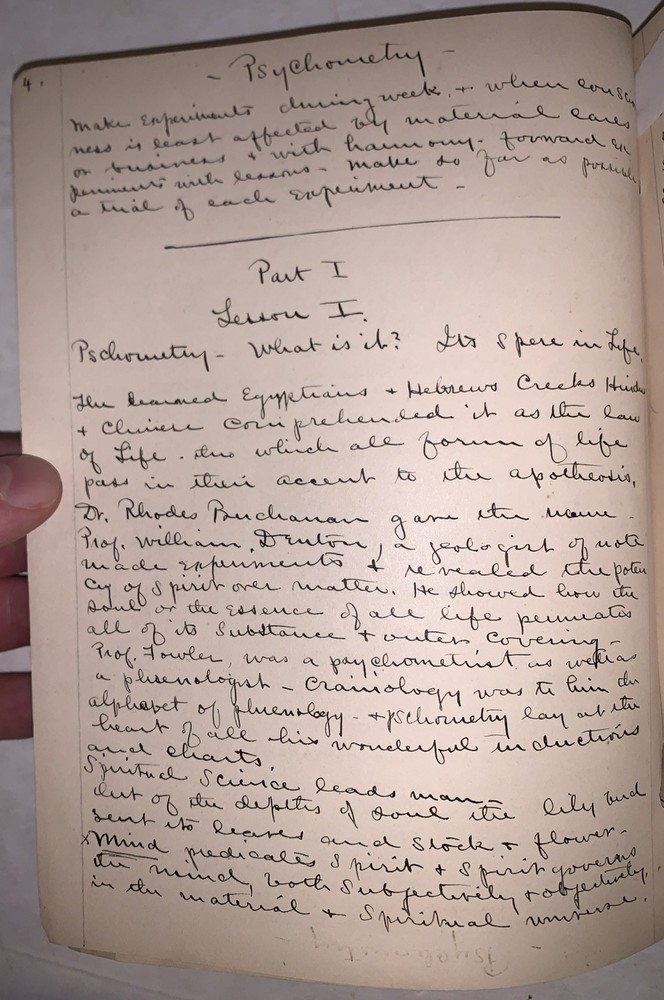 4.
- Psychometry -
make Experiments during week, + when consci
ness is least affected by material cares
or business + with harmony. Forward ex
periments with lessons - make so far as possible
a trial of each Experiment -
Part I
Lesson I.
Pschometry - What is it? Its Spere in Life.
The learned Egyptians + Hebrews Creeks Hindus
+ Chinese comprehended it as the law
of Life. thro which all forum of life
pass in their accent to the apotheosis.
Dr. Rhodes Buchanan gave the name -
Prof. William Denton, a geologist of note
made experiments + revealed the poten
cy of Spirit over matter. He showed how the
soul or the Essence of all life permeates
all of its Substance + outer covering -
Prof. Fowler, was a psychometrist as well as
a phrenologist - Craniology was to him the
alphabet of phrenology - + pschometry lay at the
heart of all his wonderful inductions
and charts.
Spiritual Science leads man -
Out of the depths of soul the lily bud
sent its leaves and stock + flower -
x Mind predicates Spirit + Spirit governs
the mind, both Subjectively + objectively,
in the material + Spiritual universe.